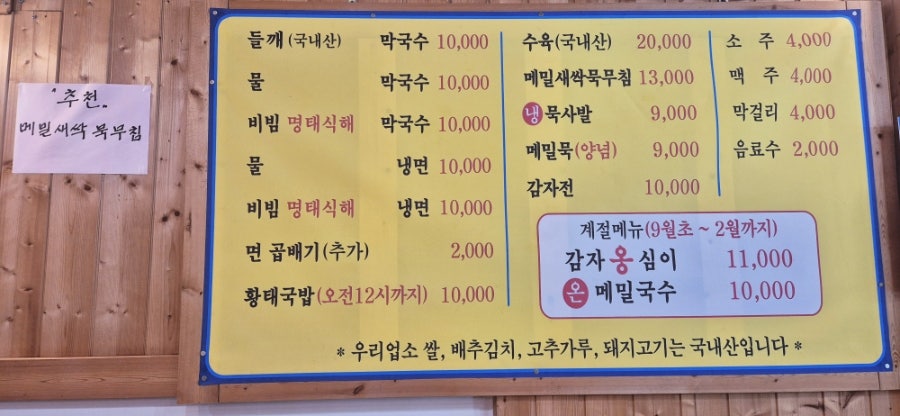 "추천"
메밀새싹 묵무침
들깨(국내산) 막국수 10,000
물 막국수 10,000
비빔 명태식해 막국수 10,000
물 냉면 10,000
비빔 명태식해 냉면 10,000
면 곱배기(추가) 2,000
황태국밥(오전12시까지) 10,000
수육(국내산) 20,000
메밀새싹묵무침 13,000
냉 묵사발 9,000
메밀묵(양념) 9,000
감자전 10,000
소 주 4,000
맥 주 4,000
막걸리 4,000
음료수 2,000
계절메뉴(9월초 ~ 2월까지)
감자 옹 심이 11,000
온 메밀국수 10,000
* 우리업소 쌀, 배추김치, 고추가루, 돼지고기는 국내산입니다 *